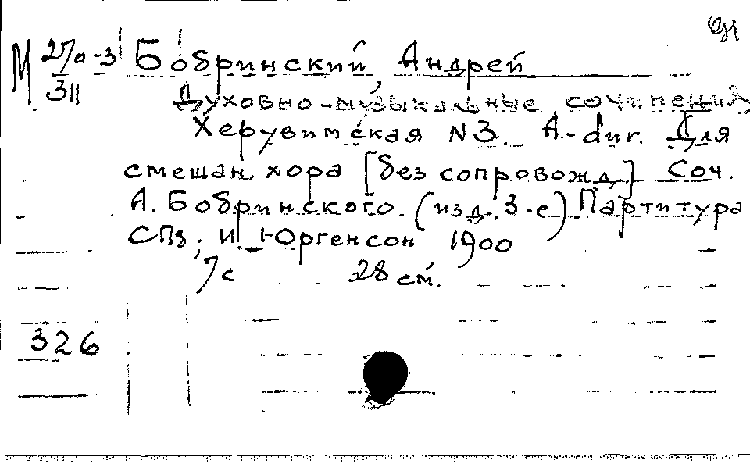 М 27а-3 Бобринский, Андрей
311 Духовно-музыкальные сочинения
Херувимская N3. A-dur. Для
смешан. хора [без сопровожд.] Соч.
А. Бобринского. (изд. 3-е) Партитура
СПб; И. Юргенсон 1900
7с 28 см.
326